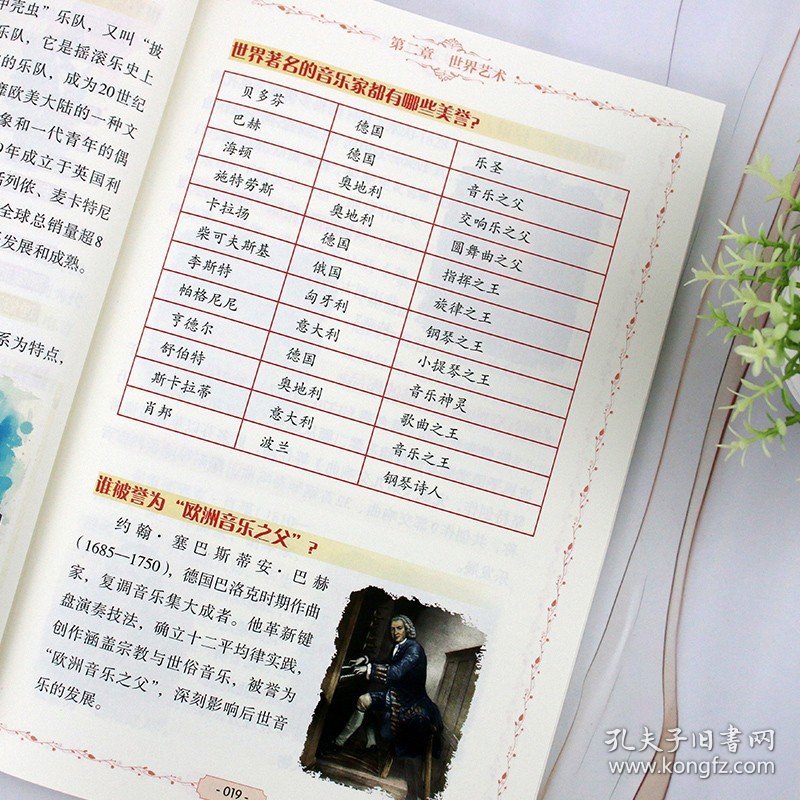 甲壳虫”乐队，又叫“披
乐队，它是摇滚乐史上
的乐队，成为20世纪
靡欧美大陆的一种文
象和一代青年的偶
年成立于英国利
括列侬、麦卡特尼
全球总销量超8
发展和成熟。
系为特点，
第二章 世界艺术
世界著名的音乐家都有哪些美誉？
贝多芬 德国 乐圣
巴赫 德国 音乐之父
海顿 奥地利 交响乐之父
施特劳斯 奥地利 圆舞曲之父
卡拉扬 德国 指挥之王
柴可夫斯基 俄国 旋律之王
李斯特 匈牙利 钢琴之王
帕格尼尼 意大利 小提琴之王
亨德尔 德国 音乐神灵
舒伯特 奥地利 歌曲之王
斯卡拉蒂 意大利 音乐之王
肖邦 波兰 钢琴诗人
谁被誉为“欧洲音乐之父”？
约翰·塞巴斯蒂安·巴赫
（1685—1750），德国巴洛克时期作曲
家，复调音乐集大成者。他革新键
盘演奏技法，确立十二平均律实践，
创作涵盖宗教与世俗音乐，被誉为
“欧洲音乐之父”，深刻影响后世音
乐的发展。
- 019 -
孔夫子旧书网
www.kongfz.com